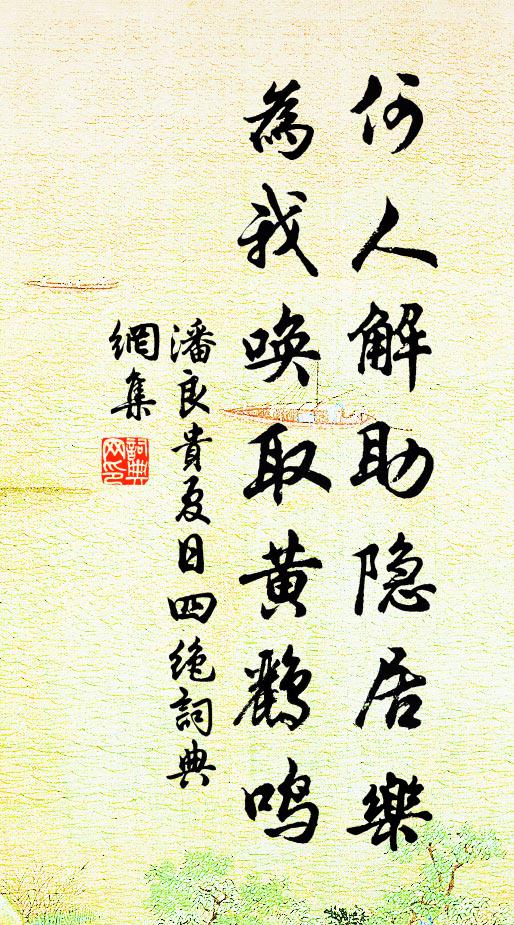 何人解助隐居樂
為我唤取黄鸝鸣
潘良貴夏日四绝詞典
網集
詞典网印